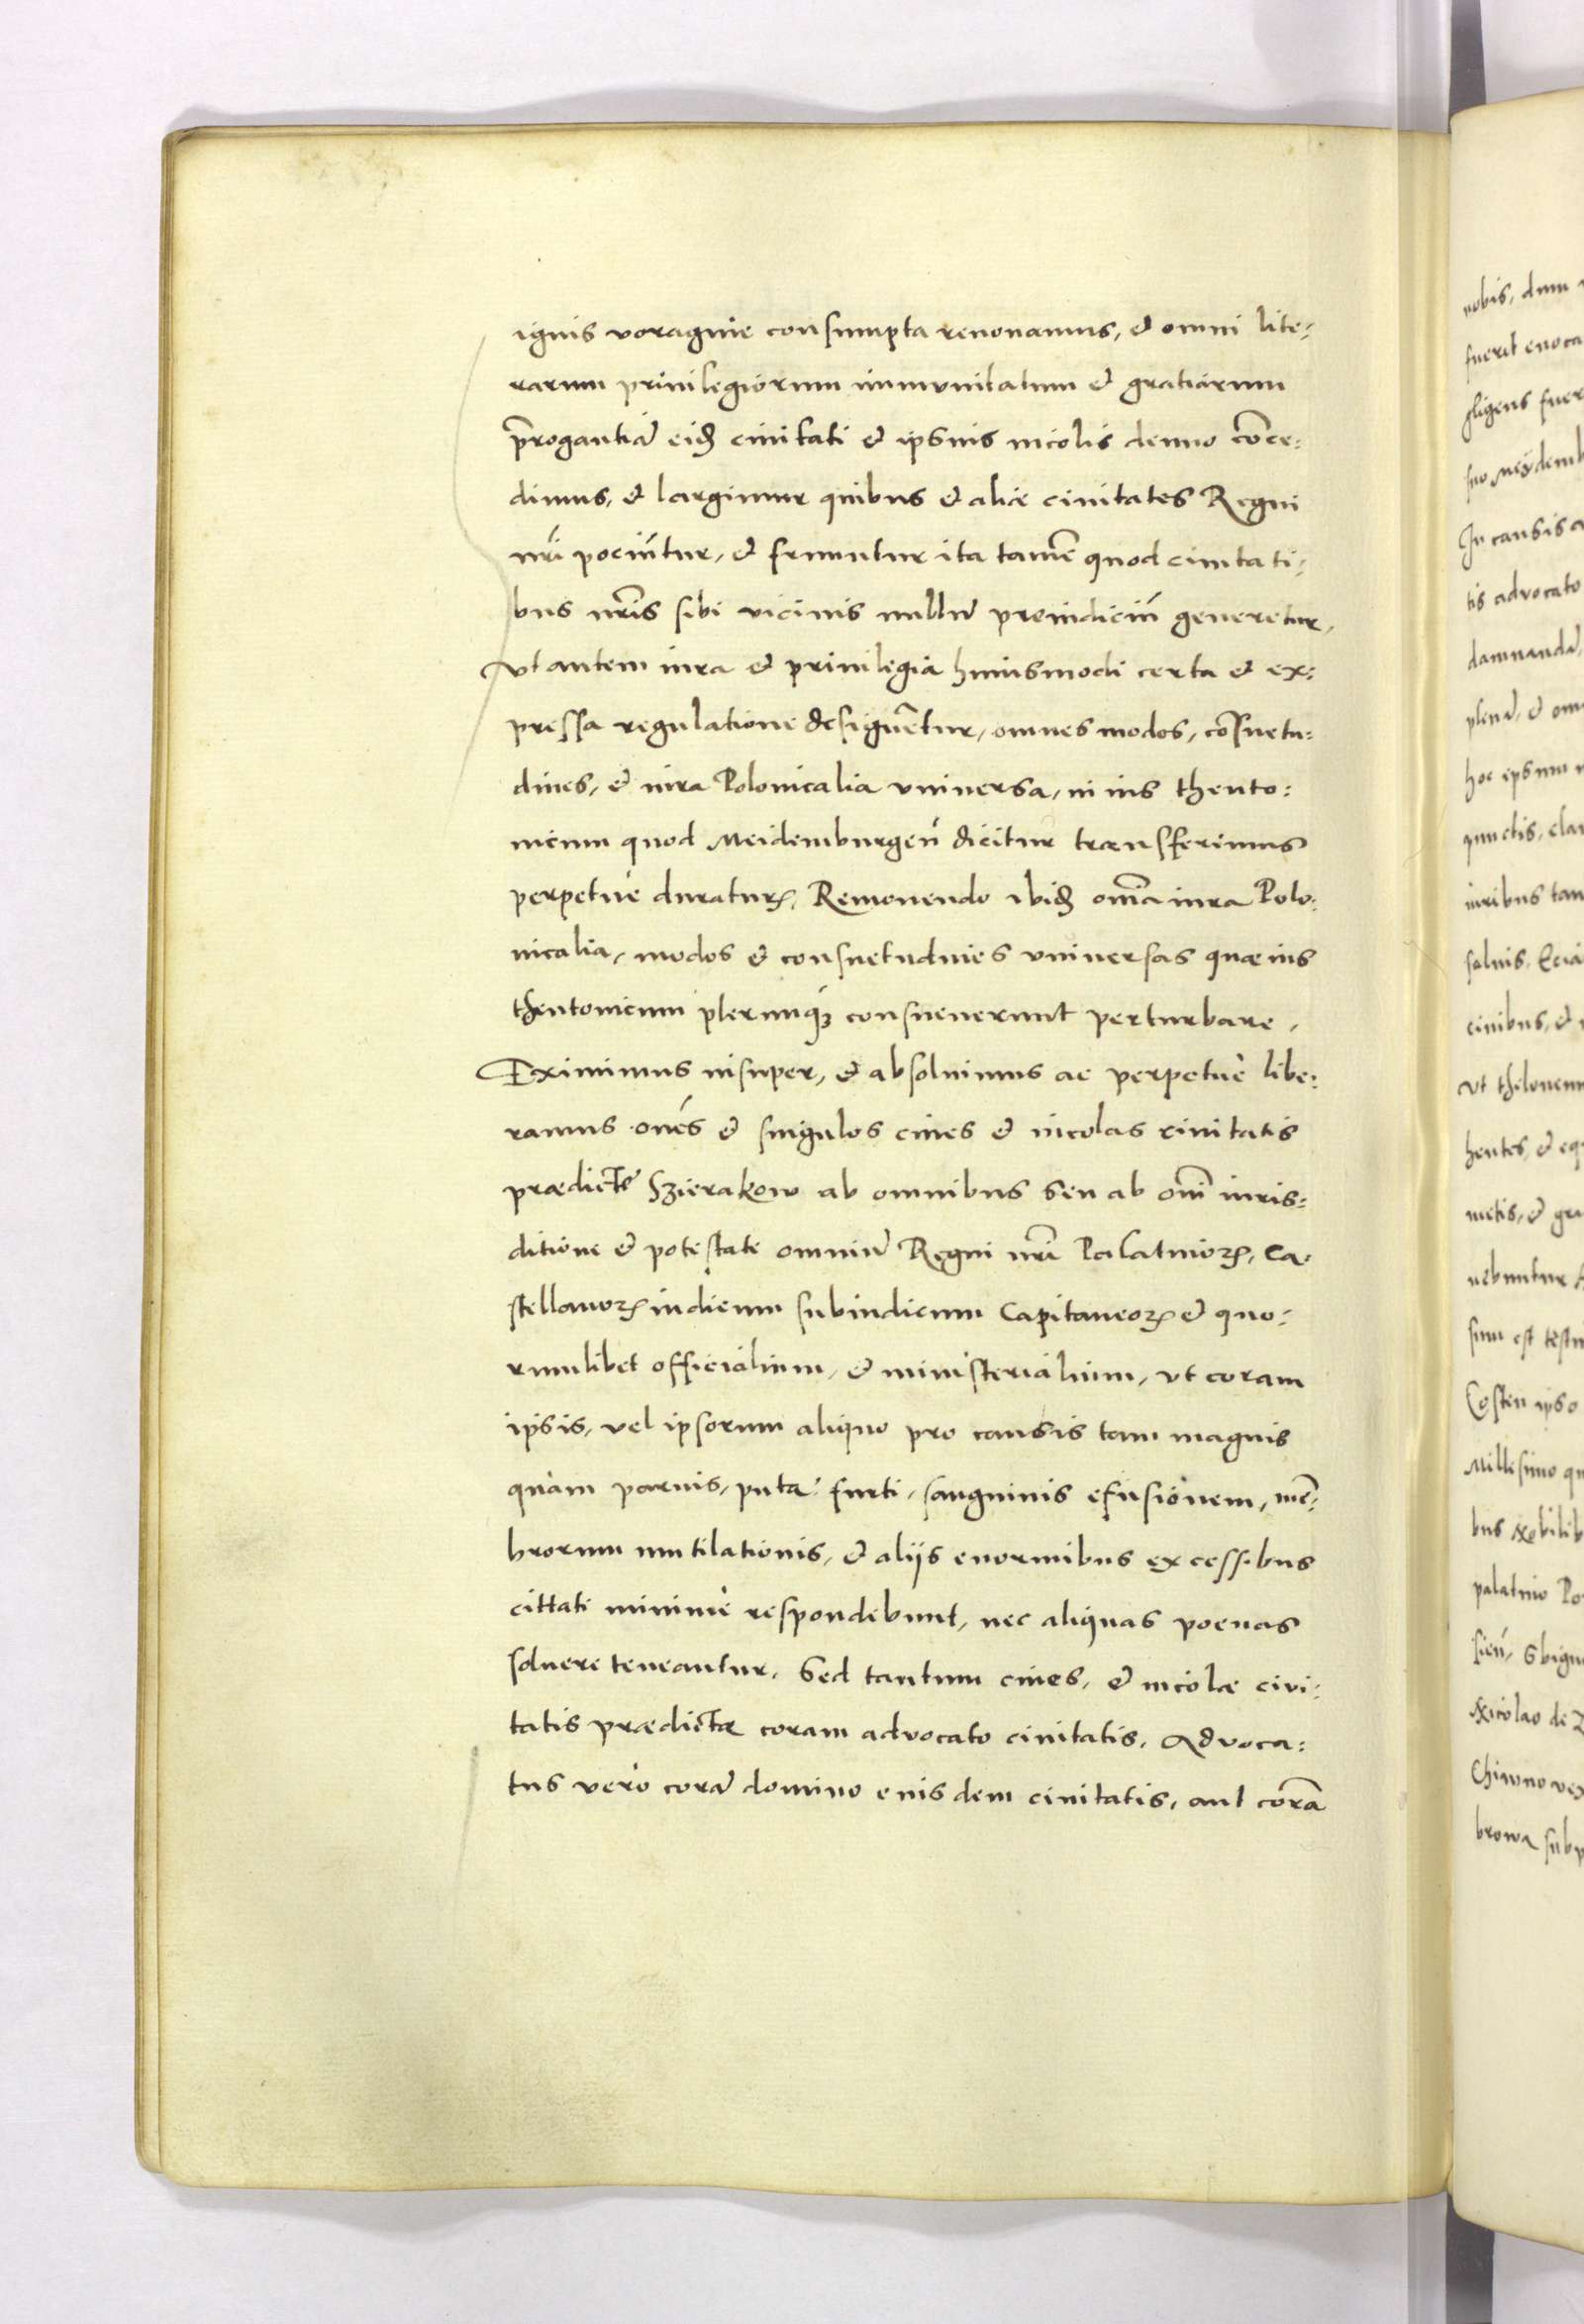 ignis voragine consumpta renovamus, et omni lite:
rarum privilegiorum immunitatum et gratiarum
p̄rogantiā eidꝫ civitati et ipsius incolis denuo cōce:
dimus, et largimur quibus et aliæ civitates Regni
nr̄i pociūtur, et fruuntur ita tamē quod civitati:
bus nr̄is sibi vicinis nullū preiudiciū generetur,
Ut autem iura et privilegia huiusmodi certa et ex:
pressa regulatione designētur, omnes modos, cōsuetu:
dines, et iura Polonicalia universa, in ius theuto:
nicum quod Meidemburgeñ dicitur transferimus
perpetuè duraturꝝ, Removendo ibidꝫ oīa iura Polo:
nicalia, modos et consuetudines universas quæ ius
theutonicum plerunqꝫ consueverunt perturbare,
Eximimus insuper, et absolvimus ac perpetuè libe:
ramus oñes et singulos cives et incolas civitatis
prædictę Szierakow ab omnibus seu ab oīni iuris:
ditione et potestate omniū Regni nr̄i Palatinoꝝ, Ca:
stellanoꝝ iudicum subiudicum Capitaneoꝝ et quo:
rumlibet officialium, et ministerialium, ut coram
ipsis, vel ipsorum aliquo pro causis tam magnis
quàm parvis, puta furti, sanguinis efusionem, mē:
brorum mutilationis, et aliis enormibus excessibus
cittati minimè respondebunt, nec aliquas poenas
solvere teneantur, Sed tantum cives, et incolæ civi:
tatis prædictæ coram advocato civitatis, Advoca:
tus verò corā domino eiusdem civitatis, aut corā
nobis, dum
fuerit evoca
gligens fuer
suo Meydemb
In causis
tis advocato
damnandū,
plenā, et om
hoc ipsum
punctis, clau
iuribus tam
salvis, Ecia
civibus, et
Ut thelonenm
hentes, et
metis, et gra
nebuntur
sum est testi
Costen ipso
Millesimo qu
bus Nobilib
palatino Po
sieñ, Sbign
Nicolao de
Chiwno vex
browa subp